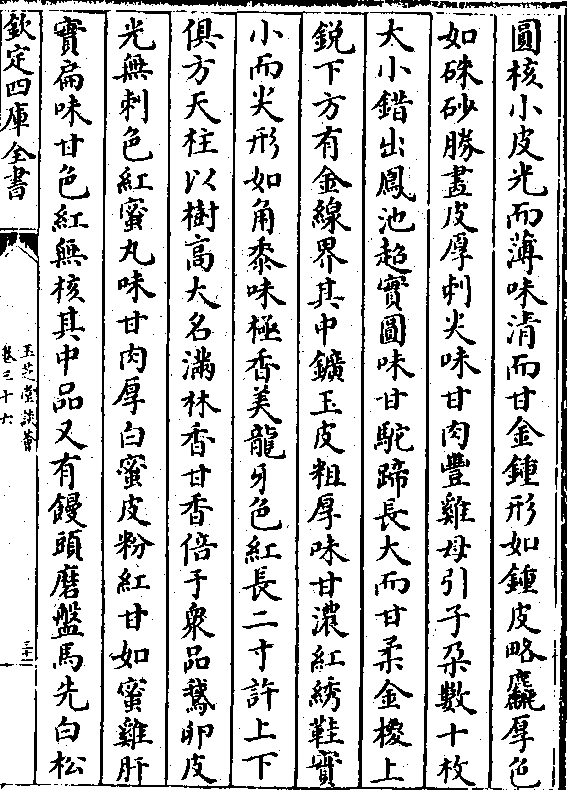 圓核小皮光而薄味清而甘金鍾形如鍾皮略麤厚色
如硃砂勝畫皮厚刺尖味甘肉豐雞母引子朶數十枚
大小錯出鳳池超實圓味甘駝蹄長大而甘柔金椶上
銳下方有金線界其中鑛玉皮粗厚味甘濃紅綉鞋實
小而尖形如角黍味極香美龍牙色紅長二寸許上下
俱方天柱以樹高大名滿林香甘香倍于衆品鵝卵皮
光無刺色紅蜜丸味甘肉厚白蜜皮粉紅甘如蜜雞肝
實扁味甘色紅無核其中品又有饅頭磨盤馬先白松
欽定四庫全書
玉芝堂談薈
卷三十六
三十二